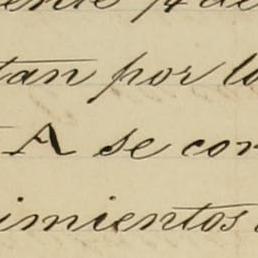 tan por lo
A se con
imientos